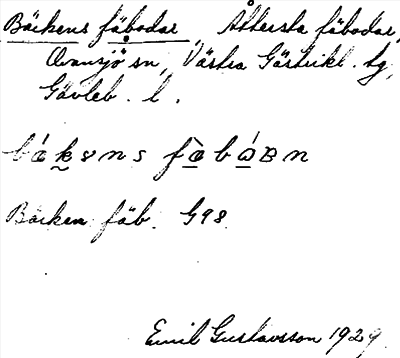 Bäckens fäbodar, Åttersta fäbodar,
Ovansjö sn, Västra Gästrikl. tg,
Gävleb. l.
Bäcken fäb. G98
Emil Gustavsson 1929.